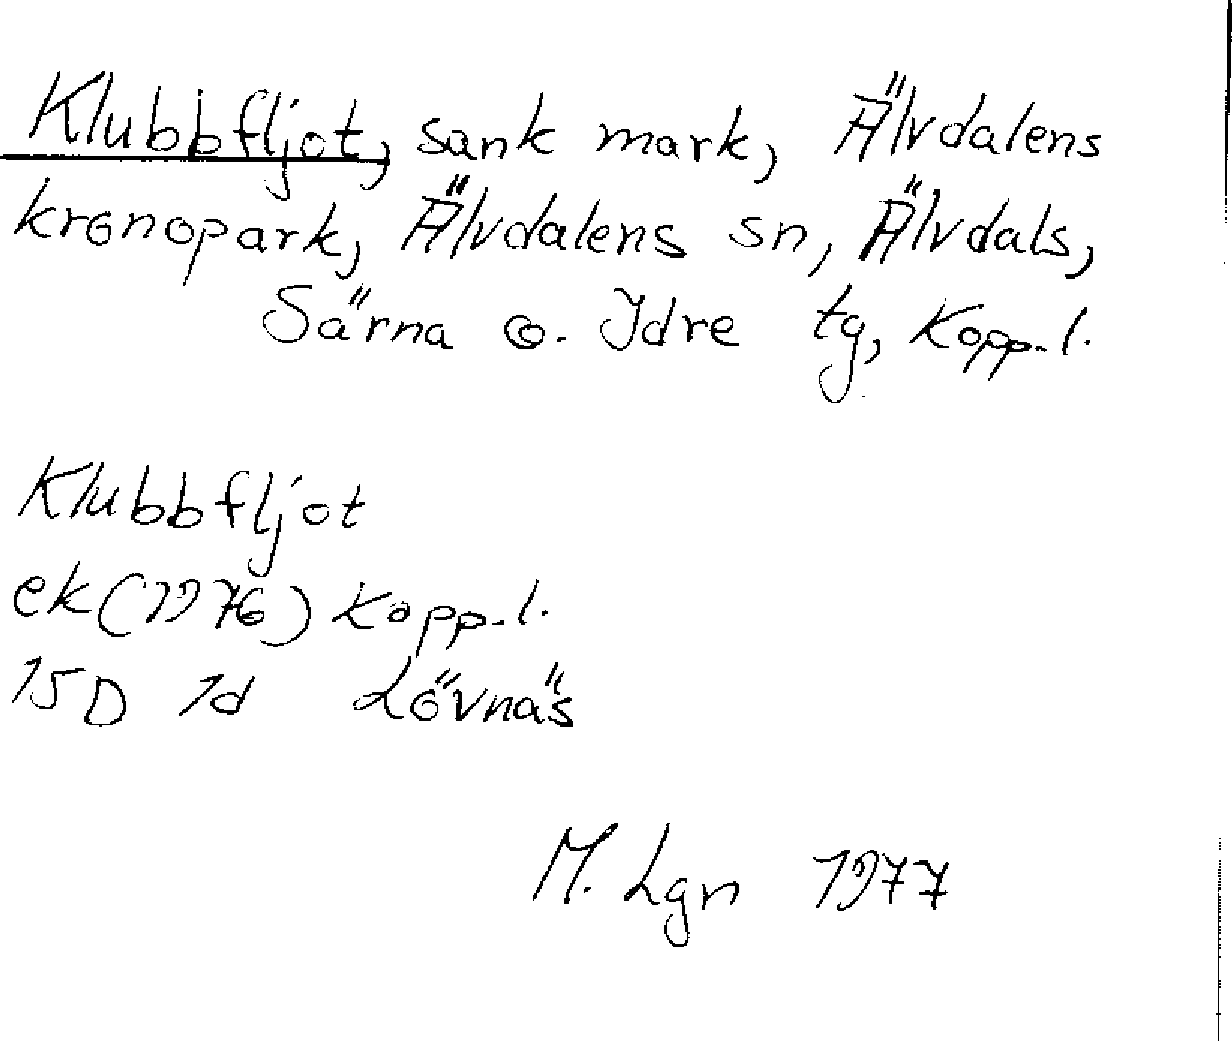 Klubbfljot, sank mark, Älvdalens
kronopark, Älvdalens sn, Älvdals,
Särna o. Idre tg, Kopp. l.
Klubbfljot
ek (1976) Kopp. l.
15D 1d Lövnäs
M. Lgn 1977